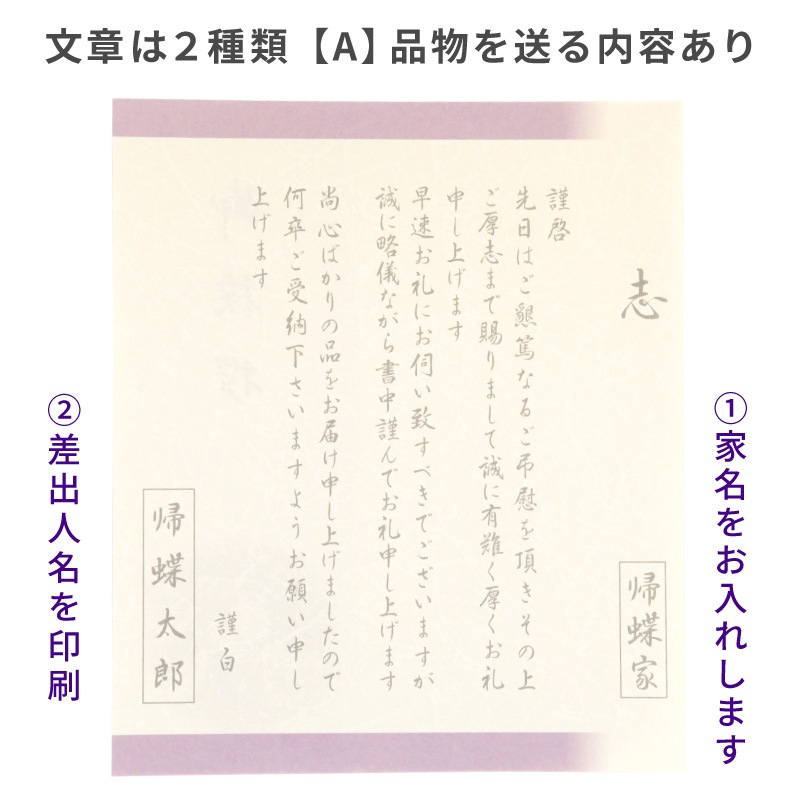 文章は２種類【A】品物を送る内容あり
①家名をお入れします
志
帰蝶家
謹啓
先日はご懇篤なるご弔慰を頂きその上
ご厚志まで賜りまして誠に有難く厚くお礼
申し上げます
早速お礼にお伺い致すべきでございますが
誠に略儀ながら書中謹んでお礼申し上げます
尚心ばかりの品をお届け申し上げましたので
何卒ご受納下さいますようお願い申し
上げます
謹白
帰蝶太郎
②差出人名を印刷